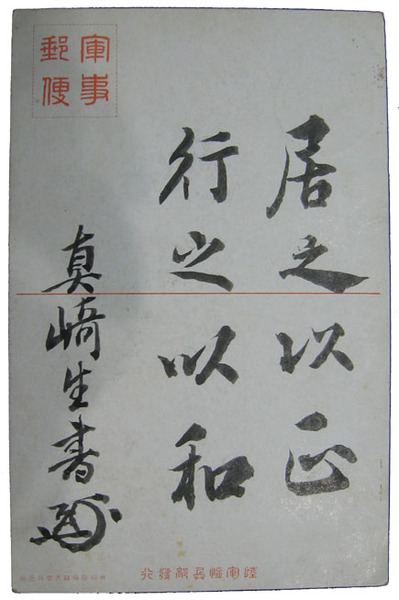 軍事
郵便
居之以正
行之以和
真崎生書
陸軍恤兵部發行